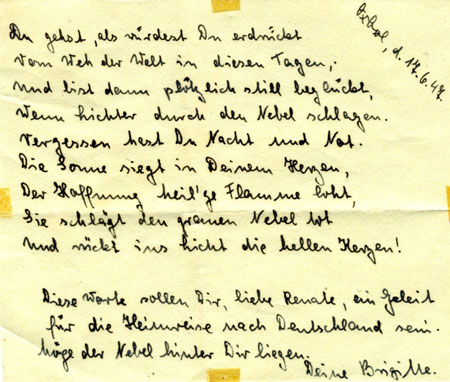 d. 17.6.47.
Du gehst, als würdest Du erdrückt
vom Weh der Welt in diesen Tagen,
und bist dann plötzlich still beglückt,
Wenn Lichter durch den Nebel schlagen.
Vergessen hast Du Nacht und Not.
Die Sonne siegt in Deinem Herzen,
Der Hoffnung heil'ge Flamme loht,
Sie schlägt den grauen Nebel tot
und rückt ins Licht die hellen Kerzen!
Diese Worte sollen Dir, liebe Renate, ein Geleit
für die Heimreise nach Deutschland sein.
Möge der Nebel hinter Dir liegen.
Deine Brigitte.